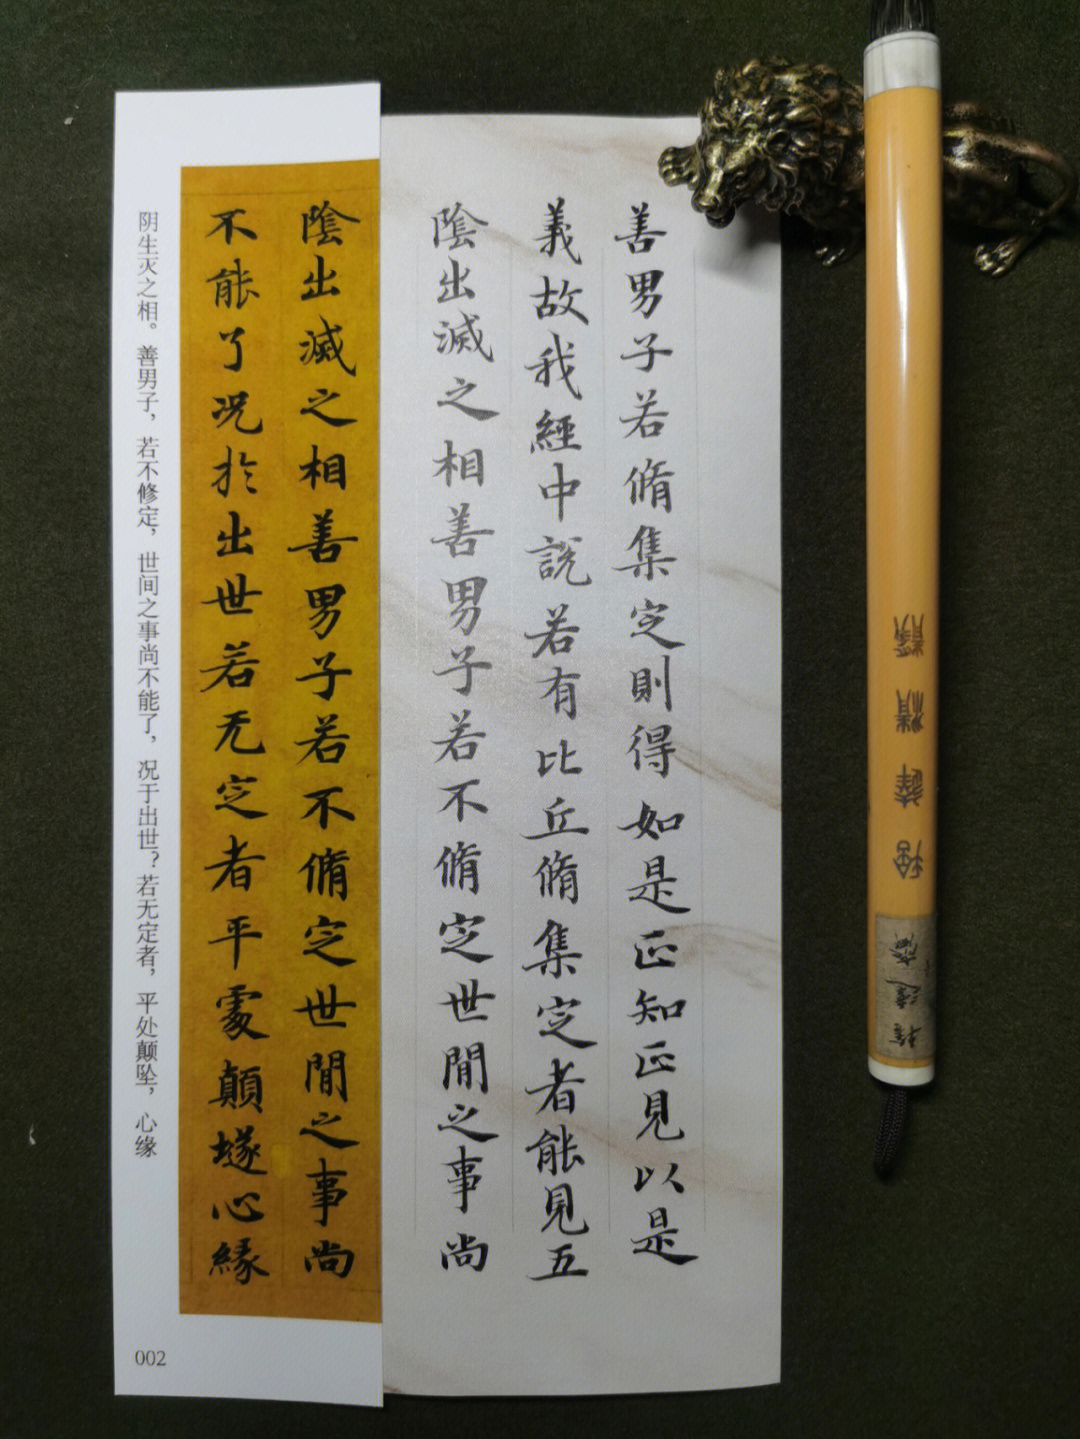 善男子若脩集定則得如是正知正見以是
義故我經中說若有比丘脩集定者能見五
陰出滅之相善男子若不脩定世間之事尚
陰出滅之相善男子若不脩定世間之事尚
不能了况於出世若无定者平處顛墜心緣
阴生灭之相。善男子，若不修定，世间之事尚不能了，况于出世？若无定者，平处颠坠，心缘
002